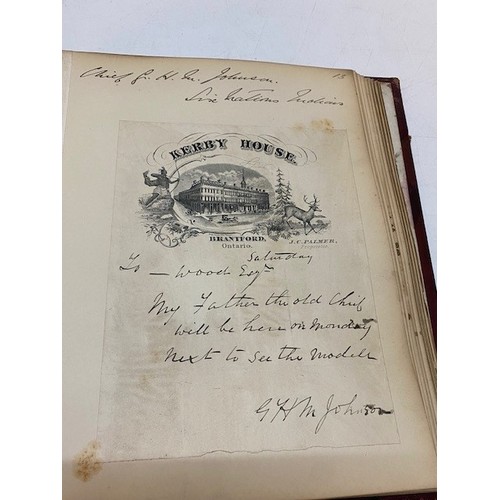 Chief G. H. M. Johnson.
13
Six Nations Indians
KERBY HOUSE.
BRANTFORD,
Ontario.
J.C. PALMER,
Proprietor.
Saturday
To — Wood Esqre
My Father the old Chief
will be here on Monday
next to see the models
G H M Johnson